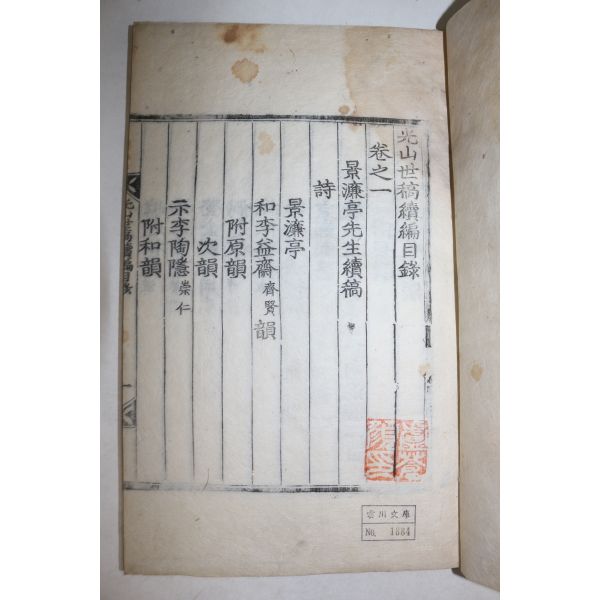 光山世稿續編目錄
卷之一
景濂亭先生續稿
詩
景濂亭
和李益齋齊賢韻
附原韻
次韻
示李陶隱崇仁
附和韻
光山世稿續編目錄
一
雲川文庫
No. 1684